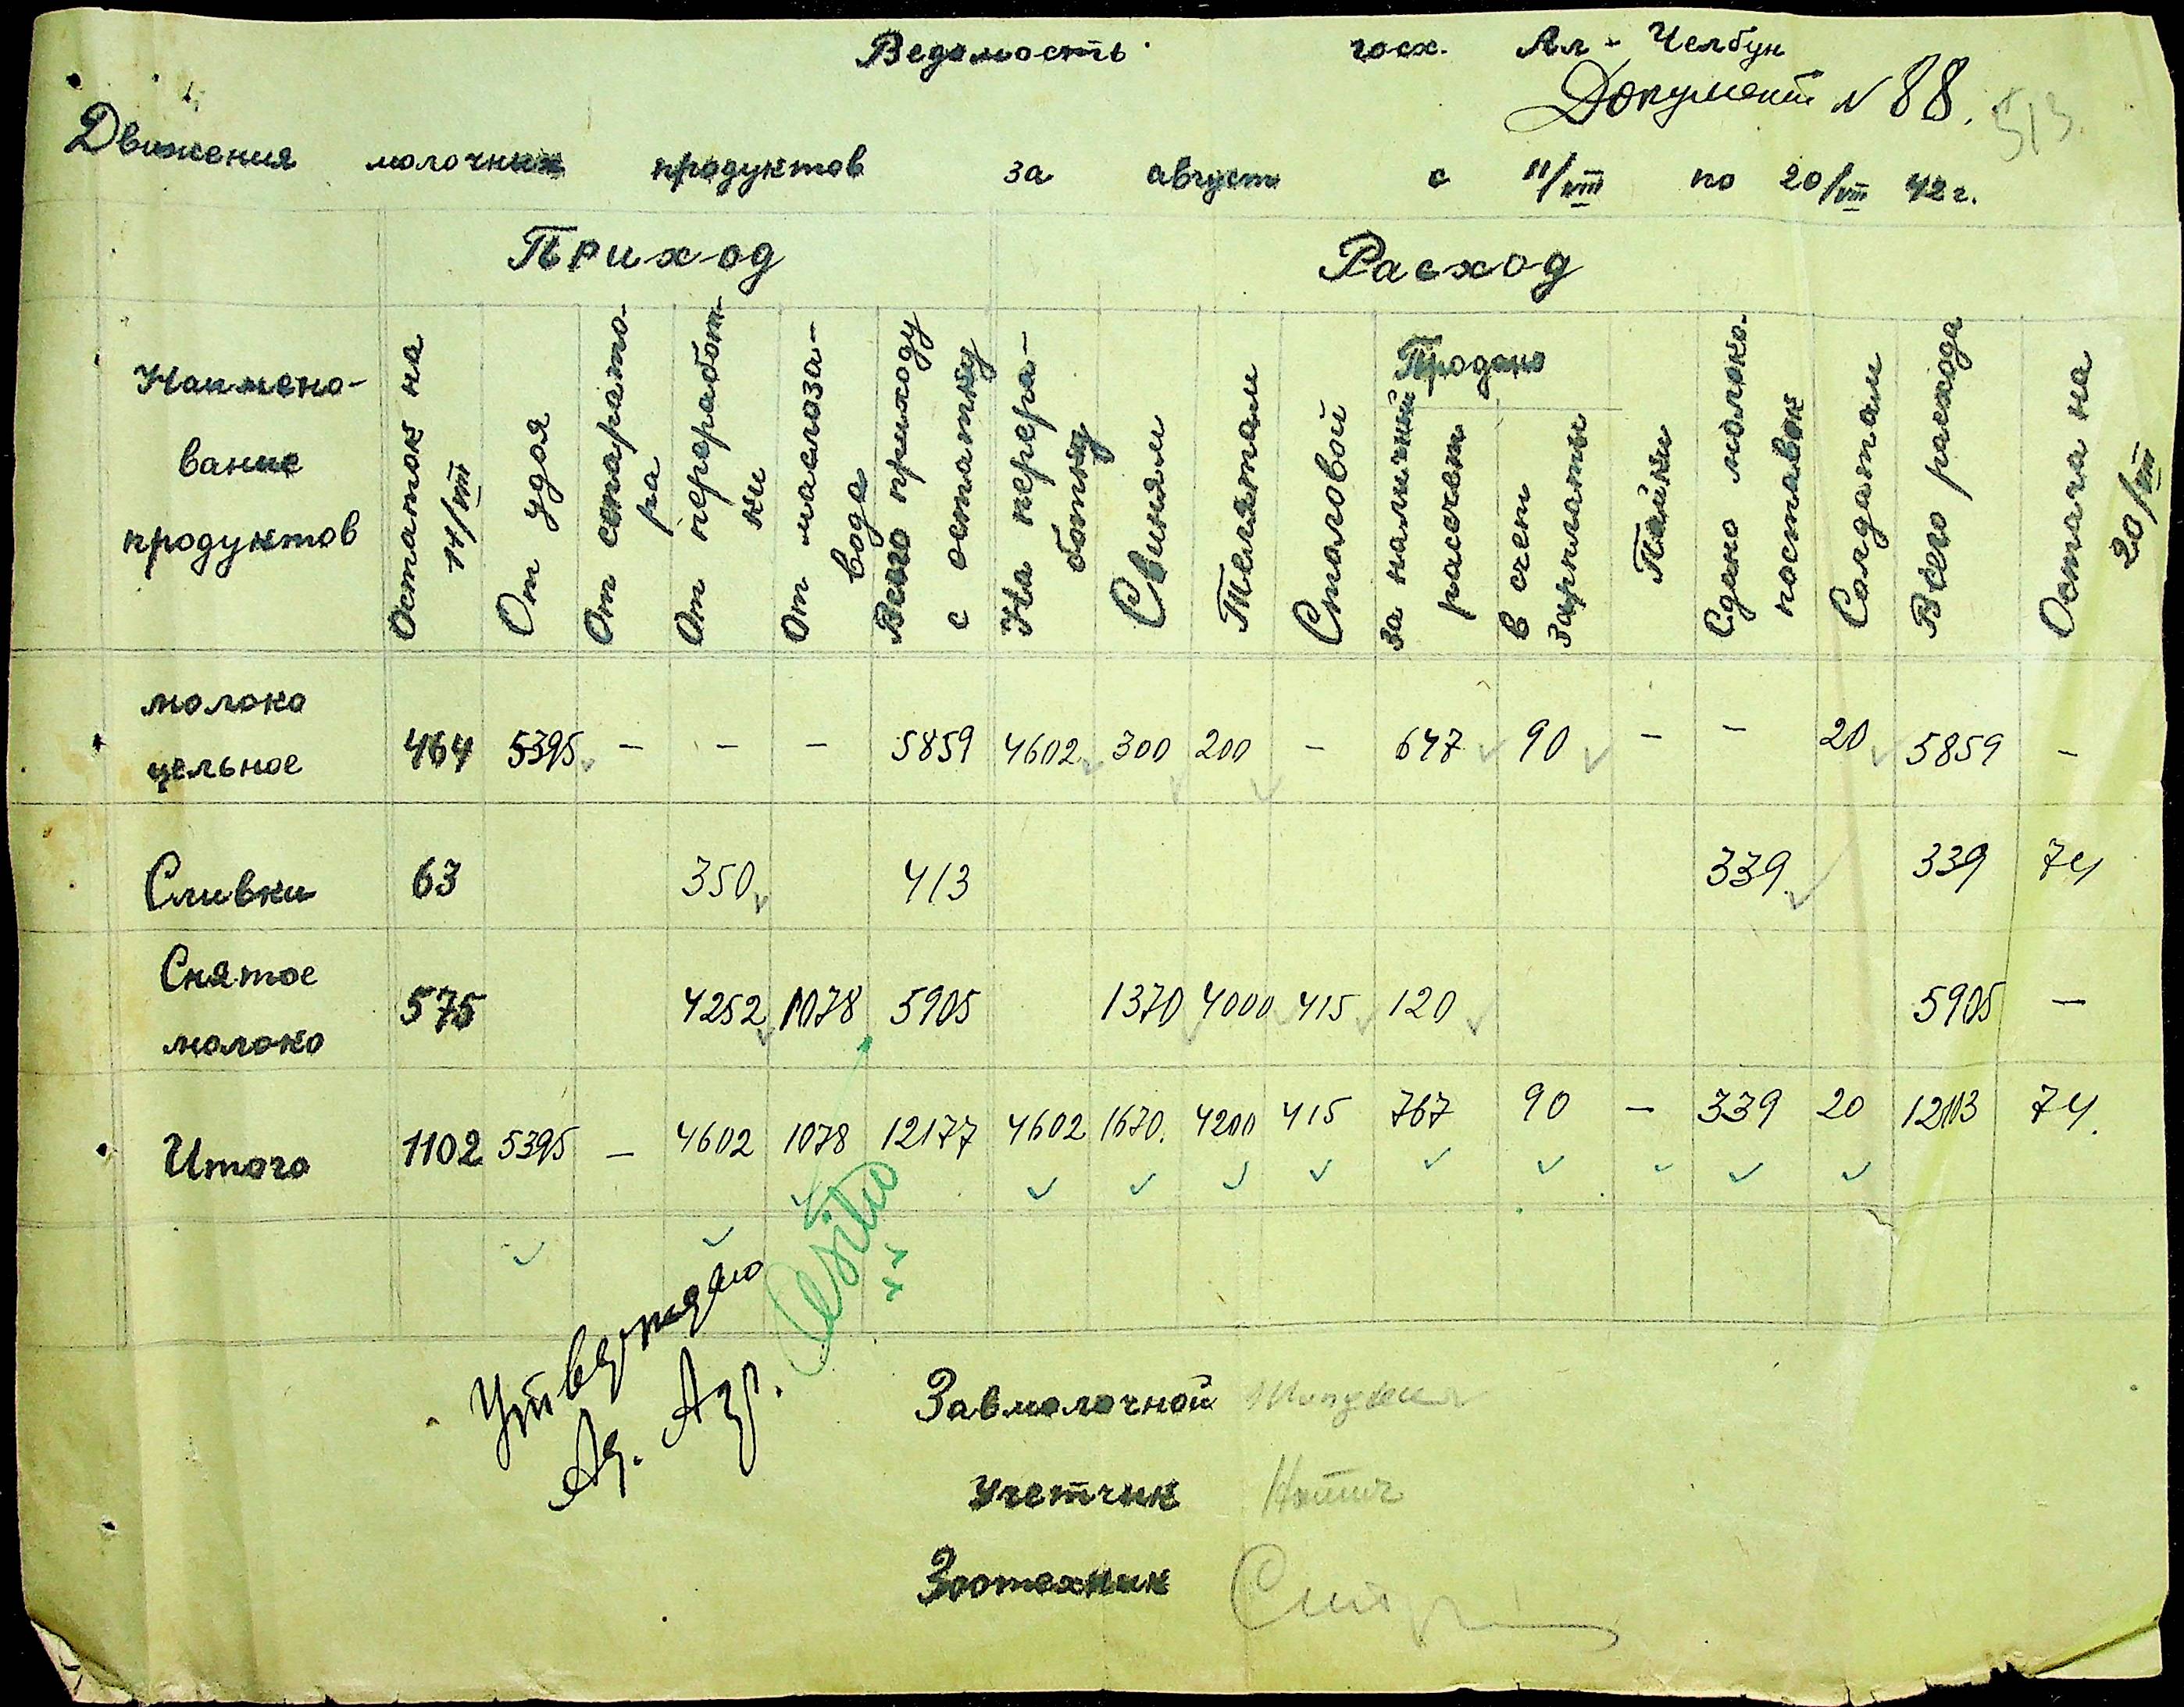 Ведомость госх. Ал - Челбун
Документ N 88. 513
Движения молочных продуктов за август с 11/VIII по 20/VIII 42 г.
Приход Расход
Наимено-
вание
продуктов
Остаток на
11/VIII
От удоя
От сепарато-
ра
От переработ-
ки
От маслоза-
вода
Всего приходу
с остатку
На перера-
ботку
Свиньям
Телятам
Столовой
Продано
за наличный
рассчет
в счет
зарплаты
Пайки
Сдано молоко-
поставок
Солдатам
Всего расхода
Остача на
20/VIII
молоко
цельное 464 5395 - - - 5859 4602 300 200 - 647 90 - - 20 5859 -
Сливки 63 350 413 339 339 74
Снятое
молоко 575 4252 1078 5905 1370 4000 415 120 5905 -
Итого 1102 5395 - 4602 1078 12177 4602 1670. 4200 415 767 90 - 339 20 12103 74.
Утверждаю
Аг. Агр.
Завмолочной
Учетчик
Зоотехник